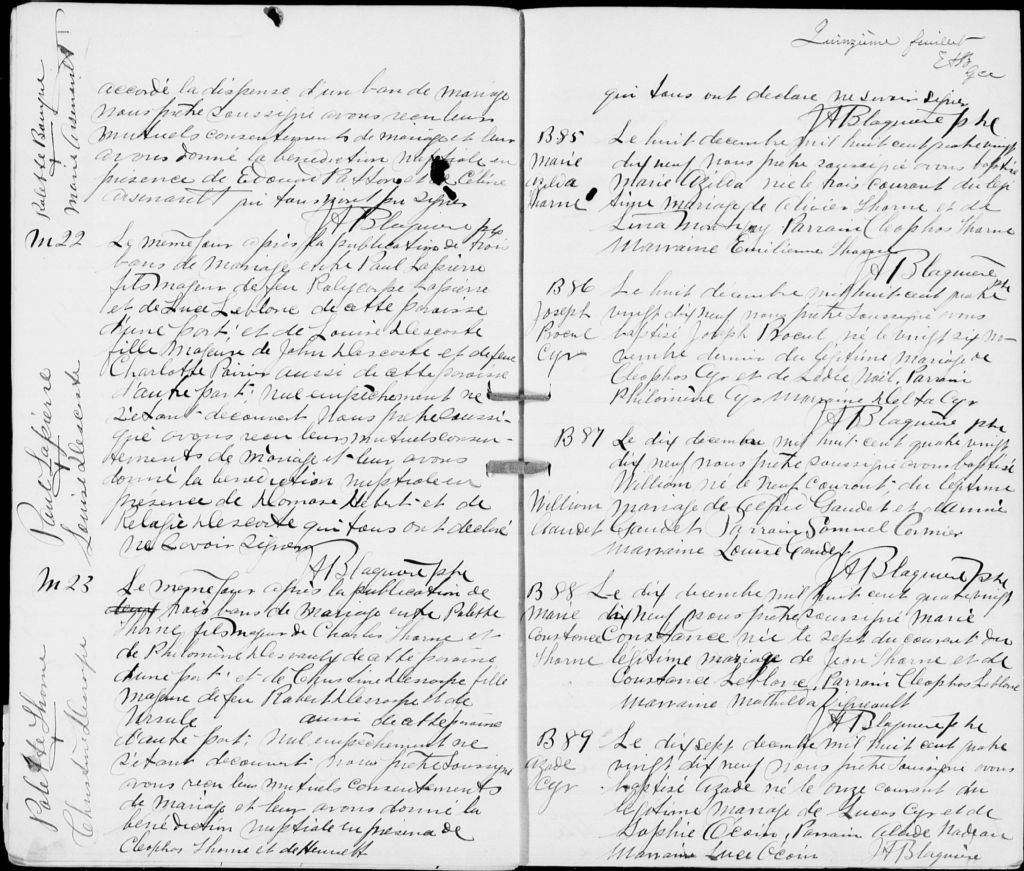 accordé la dispense d'un ban de mariage
nous prêtre soussigné avons recu leurs
mutuels consentements de mariage et leur
avons donné la bénédiction nuptiale en
présence de Edouard et de Céline
Arsenault qui tous n'ont pu signer
JABlaquière ptre
Marie Arsenault
M22
Paul Lapierre
Louise Decoste
Le même jour après la publication de trois
bans de mariage entre Paul Lapierre
fils majeur de feu Polycarpe Lapierre
et de Luce Leblanc de cette paroisse
d'une part; et de Louise Decoste
fille majeure de John Decoste et de feue
Charlotte Poirier aussi de cette paroisse
d'autre part; nul empêchement ne
s'étant découvert nous prêtre soussi-
gné avons recu leurs mutuels consen-
tements de mariage et leur avons
donné la bénédiction nuptiale en
présence de Thomas Hebert et de
Pelagie Decoste qui tous ont déclaré
ne savoir signer
JABlaquière ptre
M23
Thorne
Christine
Le même jour après la publication de
trois bans de mariage entre Palette
Thorne fils majeur de Charles Thorne et
de Philomène de cette paroisse
d'une part; et de Christine fille
majeure de feu Robert et de
Ursule aussi de cette paroisse
d'autre part; nul empêchement ne
s'étant découvert nous prêtre soussigné
avons recu leur mutuels consentements
de mariage et leur avons donné la
bénédiction nuptiale en présence de
Cleophos Thorne et de Henriett
Quinzième feuillet
qui tous ont declare ne savoir signer
JABlaquière ptre
B85
Marie
Azilda
Thorne
Le huit decembre mil huit cent quatre vingt
dix neuf nous prêtre soussigné avons baptisé
Marie Azilda née le trois courant du légi
time mariage de Olivier Thorne et de
Lina Parrain Cleophos Thorne
Marraine Emilienne
JABlaquière ptre
B86
Joseph
Procul
Cyr
Le huit décembre mil huit cent quatre
vingt dix neuf nous prêtre soussigné avons
baptisé Joseph Procul né le vingt six no
vembre dernier du légitime mariage de
Cleophos Cyr et de Noël, Parrain
Philomène Cyr Marraine Delta Cyr
JABlaquière ptre
B87
William
Gaudet
Le dix decembre mil huit cent quatre vingt
dix neuf nous prêtre soussigné avons baptisé
William né le neuf courant, du légitime
mariage de Alfred Gaudet et
Gaudet Parrain Samuel Cormier
Marraine Louise Gaudet
JABlaquière ptre
B88
Marie
Constance
Thorne
Le dix décembre mil huit cent quatre vingt
dix neuf nous prêtre soussigné Marie
Constance née le sept du courant du
légitime mariage de Jean Thorne et de
Constance Leblanc, Parrain Cleophos Leblanc
Marraine Mathilda
JABlaquière ptre
B89
Azade
Cyr
Le dix sept decembre mil huit cent quatre
vingt dix neuf nous prêtre soussigné avons
baptisé Azade né le onze courant du
légitime mariage de Lucas Cyr et de
Sophie Parrain Nadeau
Marraine Luce
JABlaquière